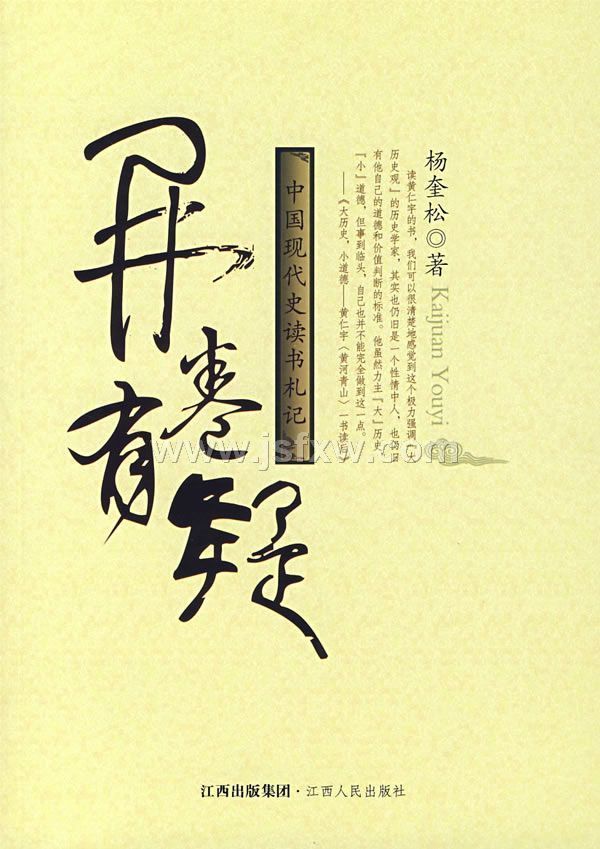 开卷有疑
中国现代史读书札记
杨奎松◎著
Kaijuan Youyi
读黄仁宇的书，我们可以很清楚地感觉到这个极力强调“大
历史观”的历史学家，其实也仍旧是一个性情中人，也仍旧
有他自己的道德和价值判断的标准。他虽然力主“大”历史
“小”道德，但事到临头，自己也并不能完全做到这一点。
——《大历史，小道德——黄仁宇〈黄河青山〉一书读后》
www.jsfxw.com
江西出版集团·江西人民出版社